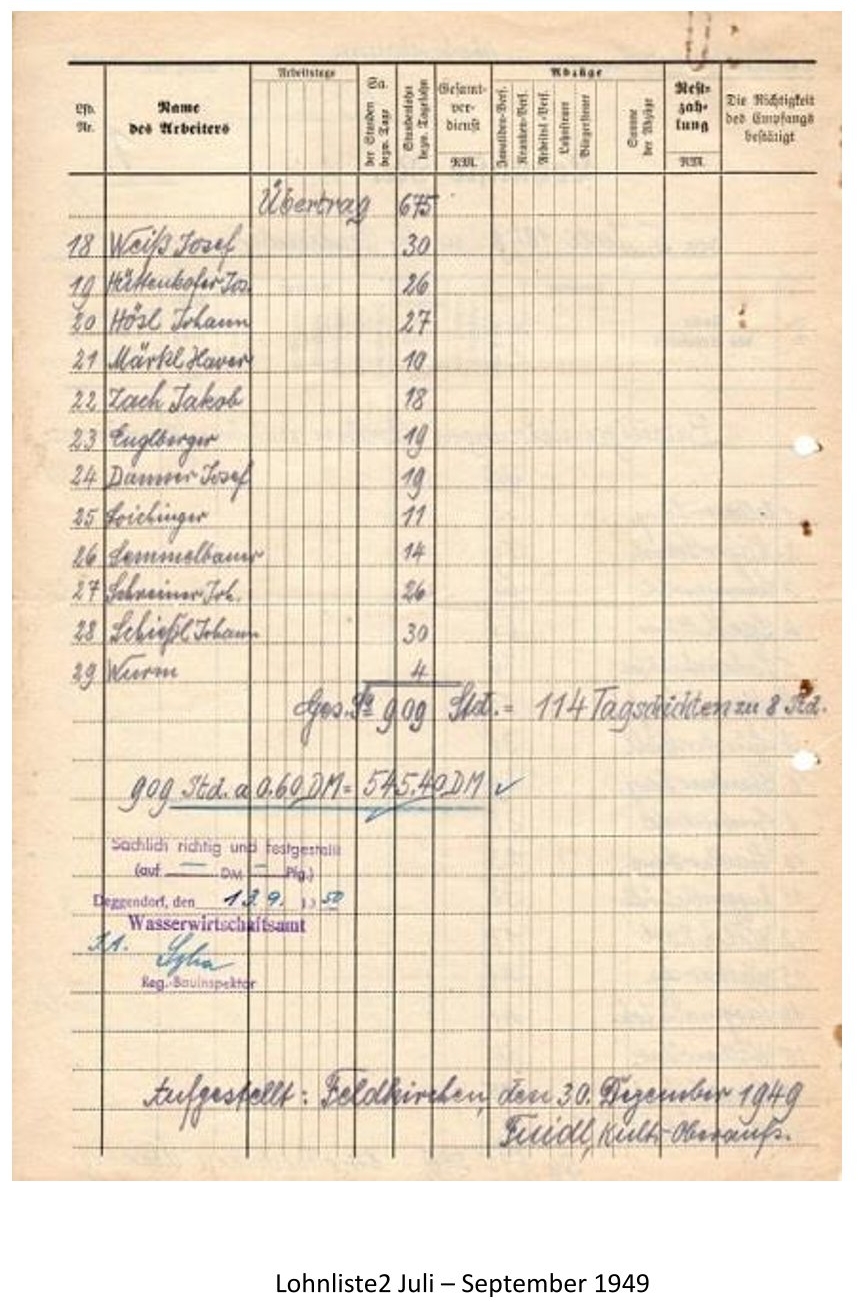 Lfd. Nr.
Name des Arbeiters
Arbeitstage
Sa. der Stunden bezw. Tage
Stundenlohn bezw. Tagelohn
Gesamt-verdienst RM.
Abzüge
Invaliden-Vers.
Kranken-Vers.
Arbeitsl.-Vers.
Lohnsteuer
Bürgersteuer
Summe der Abzüge
Rest-zah-lung RM.
Die Richtigkeit des Empfangs bestätigt
Übertrag 675
18 Weiß Josef 30
19 Hüttenhofer Jos. 26
20 Hösl Johann 27
21 Märkl Xaver 10
22 Zach Jakob 18
23 Englberger 19
24 Danner Josef 19
25 Loichinger 11
26 Semmelbauer 14
27 Schreiner Joh. 26
28 Schießl Johann 30
29 Wurm 4
Ges. Sa 909 Std. = 114 Tagschichten zu 8 Std.
909 Std. a 0.60 DM = 545.40 DM ✓
Sachlich richtig und festgestellt
(auf — DM — Pfg.)
Deggendorf, den 13.9. 1950
Wasserwirtschaftsamt
I.A.
Reg.-Bauinspektor
Aufgestellt: Feldkirchen, den 30. Dezember 1949
Kult.-Oberaufs.
Lohnliste2 Juli – September 1949